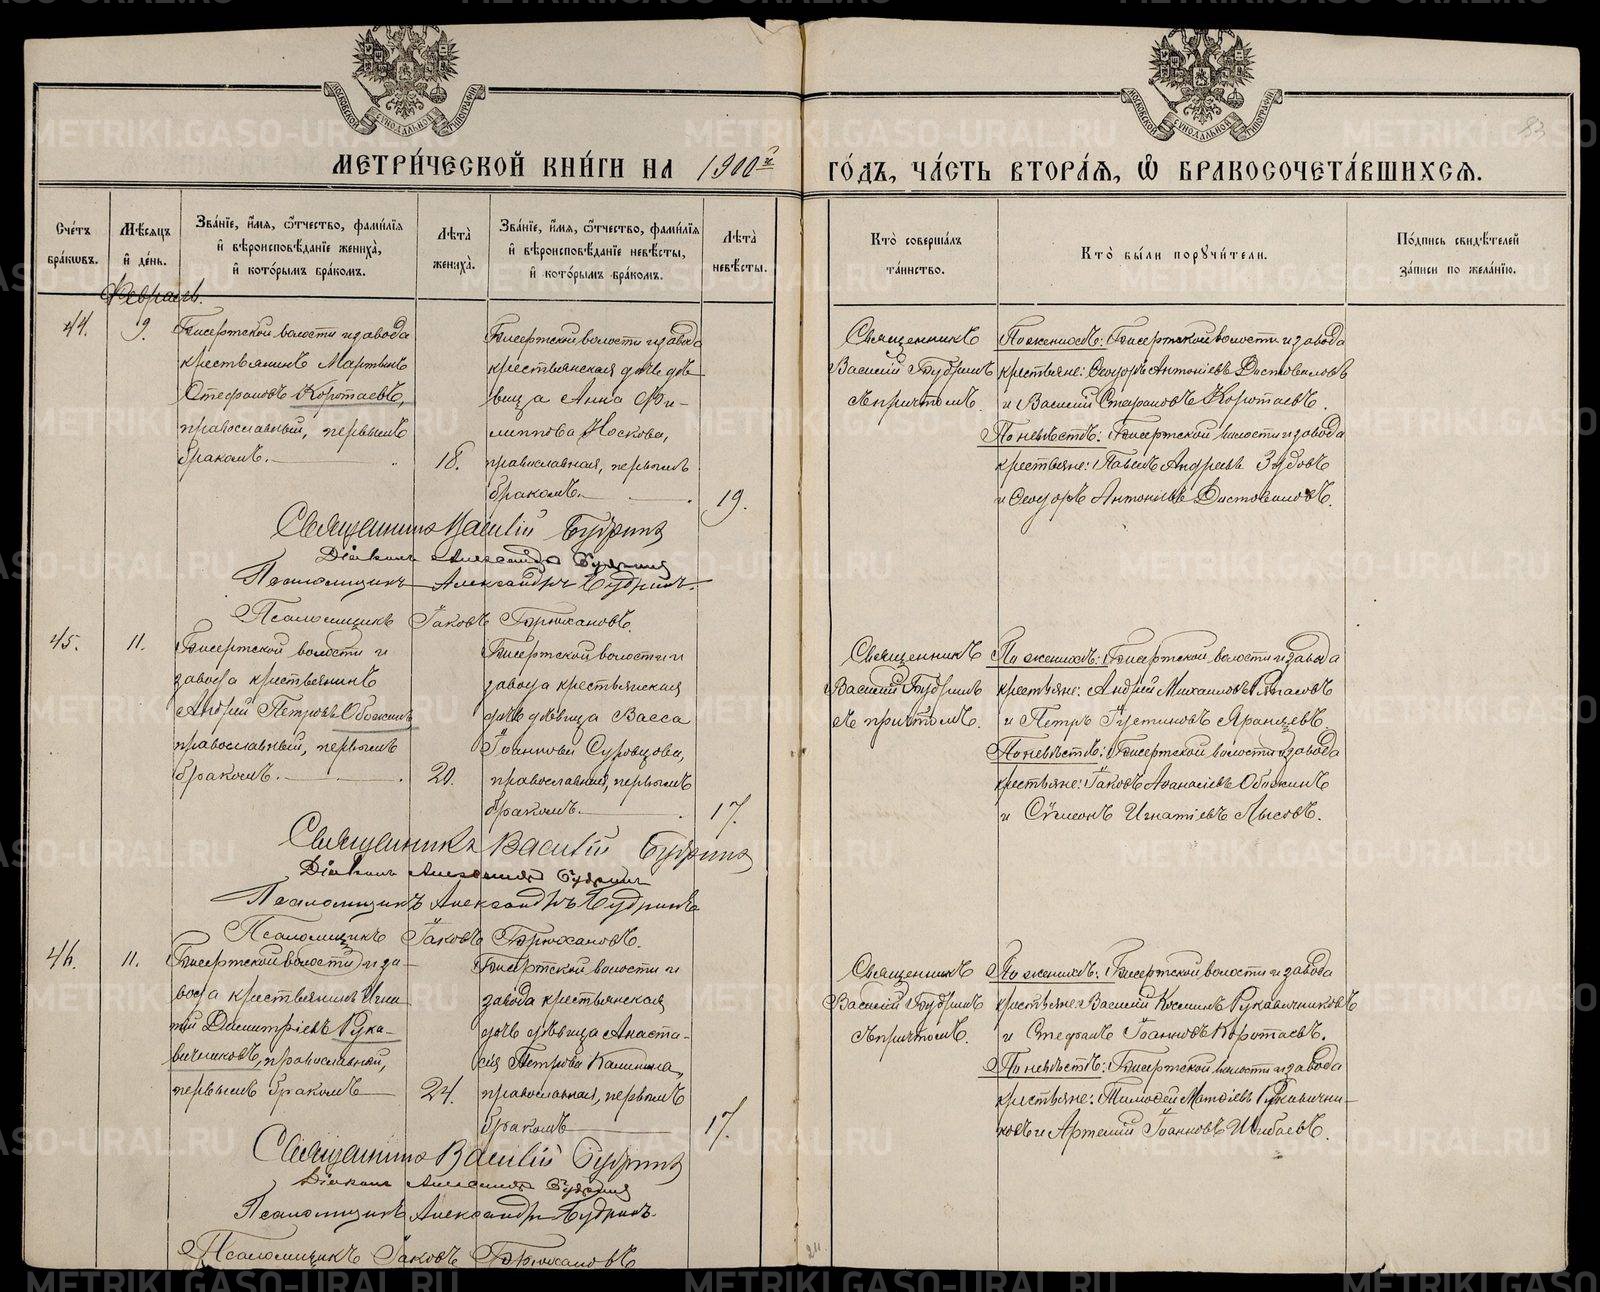 МЕТРИ́ЧЕСКОЙ КНИ́ГИ НА 1900й ГО́ДЪ, ЧА́СТЬ ВТОРА́Ѧ, Ѽ БРАКОСОЧЕТА́ВШИХСѦ.
83
Сче́тъ бра́кѡвъ.
Мѣ́сѧцъ и҆ де́нь.
Зва́нїе, и҆́мѧ, ѻ҆́тчество, фами́лїѧ и҆ вѣроисповѣ́данїе жениха̀, и҆ кото́рымъ бра́комъ.
Лѣта̀ жениха̀.
Зва́нїе, и҆́мѧ, ѻ҆́тчество, фами́лїѧ и҆ вѣроисповѣ́данїе невѣ́сты, и҆ кото́рымъ бра́комъ.
Лѣта̀ невѣ́сты.
Кто̀ соверша́лъ та́инство.
Кто̀ бы́ли порꙋчи́тели.
По́дпись свидѣ́телей за́писи по жела́нїю.
Февраль.
44.
9.
Бисертской волости и завода
крестьянинъ Мартинъ
Стефановъ Коротаевъ,
православный, первымъ
бракомъ.
18.
Бисертской волости и завода
крестьянская дочь дѣ-
вица Анна Фи-
липпова Носкова,
православная, первымъ
бракомъ.
19.
Священникъ
Василій Будринъ
съ причтомъ.
По женихѣ: Бисертской волости и завода
крестьяне: Ѳеодоръ Антоніевъ Достоваловъ
и Василій Стефановъ Коротаевъ.
По невѣстѣ: Бисертской волости и завода
крестьяне: Павелъ Андреевъ Зубовъ
и Ѳеодоръ Антоніевъ Достоваловъ.
Священникъ Василій Будринъ
Діаконъ Александръ Будринъ
Псаломщикъ Александръ Будринъ.
Псаломщикъ Іаковъ Брюхановъ.
45.
11.
Бисертской волости и
завода крестьянинъ
Андрей Петровъ Обожинъ
православный, первымъ
бракомъ.
20.
Бисертской волости и
завода крестьянская
дочь дѣвица Васса
Іоаннова Суровцова,
православная, первымъ
бракомъ.
17.
Священникъ
Василій Будринъ
съ причтомъ.
По женихѣ: Бисертской волости и завода
крестьяне: Андрей Михаиловъ
и Петръ Іустиновъ Яранцевъ.
По невѣстѣ: Бисертской волости и завода
крестьяне: Іаковъ Аѳанасіевъ Обожинъ
и Сѵмеонъ Игнатіевъ Лысовъ.
Священникъ Василій Будринъ
Діаконъ Александръ Будринъ
Псаломщикъ Александръ Будринъ
Псаломщикъ Іаковъ Брюхановъ.
46.
11.
Бисертской волости и за-
вода крестьянинъ Игна-
тій Димитріевъ Рука-
вичниковъ, православный,
первымъ бракомъ
24.
Бисертской волости и
завода крестьянская
дочь дѣвица Анаста-
сія Петрова Калинина,
православная, первымъ
бракомъ
17.
Священникъ
Василій Будринъ
съ причтомъ.
По женихѣ: Бисертской волости и завода
крестьяне: Василій Косминъ Рукавичниковъ
и Стефанъ Іоанновъ Коротаевъ.
По невѣстѣ: Бисертской волости и завода
крестьяне: Тимоѳей Матѳіевъ Рукавични-
ковъ и Артемій Іоанновъ Шибаевъ.
Священникъ Василій Будринъ
Діаконъ Александръ Будринъ
Псаломщикъ Александръ Будринъ.
Псаломщикъ Іаковъ Брюхановъ
METRIKI.GASO-URAL.RU